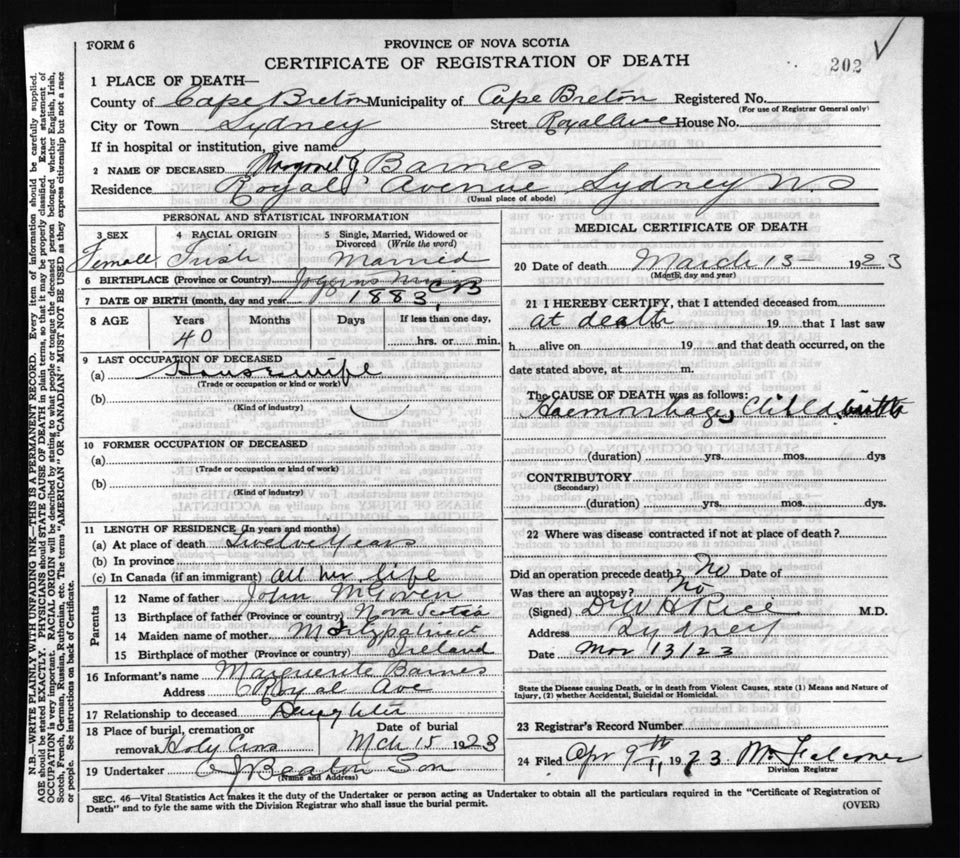 FORM 6
PROVINCE OF NOVA SCOTIA
CERTIFICATE OF REGISTRATION OF DEATH
202
1 PLACE OF DEATH—
County of Cape Breton Municipality of Cape Breton Registered No.
(For use of Registrar General only)
City or Town Sydney Street Royal Ave House No.
If in hospital or institution, give name
2 NAME OF DECEASED Margaret J Barnes
Residence Royal Avenue Sydney N.S
(Usual place of abode)
PERSONAL AND STATISTICAL INFORMATION
3 SEX 4 RACIAL ORIGIN 5 Single, Married, Widowed or Divorced (Write the word)
Female Irish Married
6 BIRTHPLACE (Province or Country) Joggins Mines CB
7 DATE OF BIRTH (month, day and year) 1883
8 AGE Years Months Days If less than one day,
40 hrs. or min.
9 LAST OCCUPATION OF DECEASED
(a) Housewife
(Trade or occupation or kind or work)
(b)
(Kind of industry)
10 FORMER OCCUPATION OF DECEASED
(a)
(Trade or occupation or kind or work)
(b)
(Kind of industry)
11 LENGTH OF RESIDENCE (In years and months)
(a) At place of death Twelve Years
(b) In province
(c) In Canada (if an immigrant) All her life
Parents
12 Name of father John
13 Birthplace of father (Province or country) Nova Scotia
14 Maiden name of mother M Fitzpatrick
15 Birthplace of mother (Province or country) Ireland
16 Informant's name Marguerite Barnes
Address Royal Ave
17 Relationship to deceased Daughter
18 Place of burial, cremation or removal Holy Cross Date of burial Mch 15 1923
19 Undertaker Beaton Son
(Name and Address)
MEDICAL CERTIFICATE OF DEATH
20 Date of death March 13 1923
(Month, day and year)
21 I HEREBY CERTIFY, that I attended deceased from
at death 19 that I last saw
h alive on 19 and that death occurred, on the
date stated above, at m.
The CAUSE OF DEATH was as follows:
Haemorrhage, Childbirth
(duration) yrs. mos. dys
CONTRIBUTORY
(Secondary)
(duration) yrs. mos. dys
22 Where was disease contracted if not at place of death?
Did an operation precede death? No Date of
Was there an autopsy? No
(Signed) Dr W S Rice M.D.
Address Sydney
Date Mar 13/23
State the Disease causing Death, or in death from Violent Causes, state (1) Means and Nature of
Injury, (2) whether Accidental, Suicidal or Homicidal.
23 Registrar's Record Number
24 Filed Apr 9th 1923
Division Registrar
SEC. 46—Vital Statistics Act makes it the duty of the Undertaker or person acting as Undertaker to obtain all the particulars required in the "Certificate of Registration of
Death" and to fyle the same with the Division Registrar who shall issue the burial permit.
(OVER)
N.B.—WRITE PLAINLY WITH UNFADING INK—THIS IS A PERMANENT RECORD. Every item of information should be carefully supplied.
AGE should be stated EXACTLY. PHYSICIANS should STATE CAUSE OF DEATH in plain terms, so that it may be properly classified. Exact statement of
OCCUPATION is very important. RACIAL ORIGIN will be described by stating to what people or tongue the deceased person belonged whether English, Irish,
Scotch, French, German, Russian, Ruthenian, etc. The terms "AMERICAN" OR "CANADIAN" MUST NOT BE USED as they express citizenship but not a race
or people. See instructions on back of Certificate.